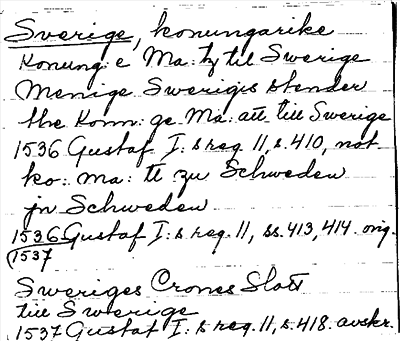 Sverige, konungarike
Konung: e Ma: tz til Swerige
Menige Swerigis stender
the Konn: ge Ma: att till Swerige
1536 Gustaf I: s reg. 11, s. 410, not.
ko: ma: tt zu Schweden
jn Schweden
1536 Gustaf I: s reg. 11, ss. 413, 414. orig.
(1537
Sweriges Crones Slott
till Swerige
1537 Gustaf I: s reg. 11, s. 418. avskr.